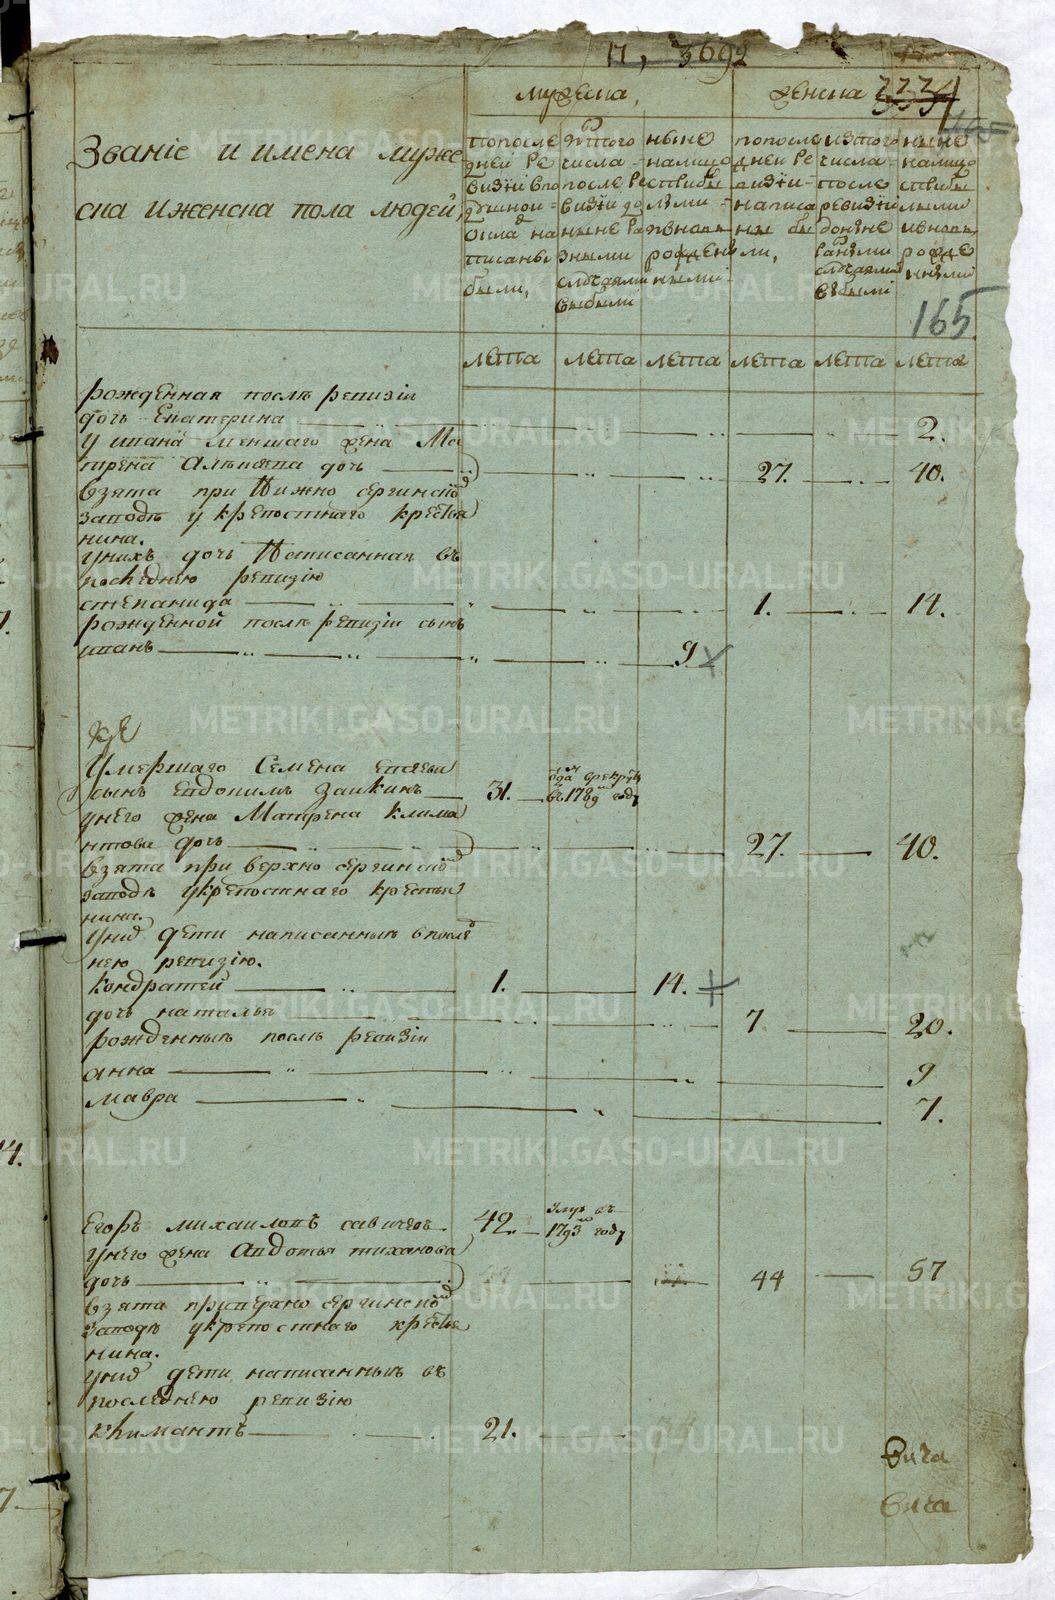 п, 3692
мужеска,
женска
Званіе и имена муже
ска и женска пола людей,
попосле
дней ре
визіи в по
душной
оклад на
писаны
были,
изтого
числа
после ре
визіи до
ныне ра
зными
случаями
выбыли
ныне
налицо
с прибы
лыми
и вновь
рожден
ными
попосле
дней ре
визіи
написа
ны бы
ли,
изтого
числа
после
ревизіи
доныне
разными
случаями
выбыли
ныне
налицо
с прибы
лыми
и вновь
рожде
нными
165
лета лета лета лета лета лета
рожденная послѣ ревизіи
дочь Екатерина 2.
у ивана меншаго жена Ма
трена дочь 27. 40.
взята при Нижно сергинском
заводѣ у крепостнаго крестья
нина.
у них дочь написанная въ
последнюю ревизію
степанида 1. 14.
рожденной послѣ ревизіи сынъ
иванъ 9
Умершаго Семена
сынъ Евдокимъ Заикинъ 31.
в 1789 году
у него жена Матрена клима
нтова дочь 27. 40.
взята при верхно сергинском
заводѣ у крепостнаго крестья
нина.
у них дети написанныя в послѣд
нею ревизію.
кондратей 1. 14.
дочь наталья 7 20.
рожденныя послѣ ревизіи
анна 9
мавра 7.
Егоръ михаиловъ савичевъ 42. умре въ 1793 году
у него жена Авдотья тиханова
дочь 44 57
взята при верхно сергинском
заводѣ у крепостнаго крестья
нина.
у них дети написанныя въ
последнюю ревизію
климантъ 21.